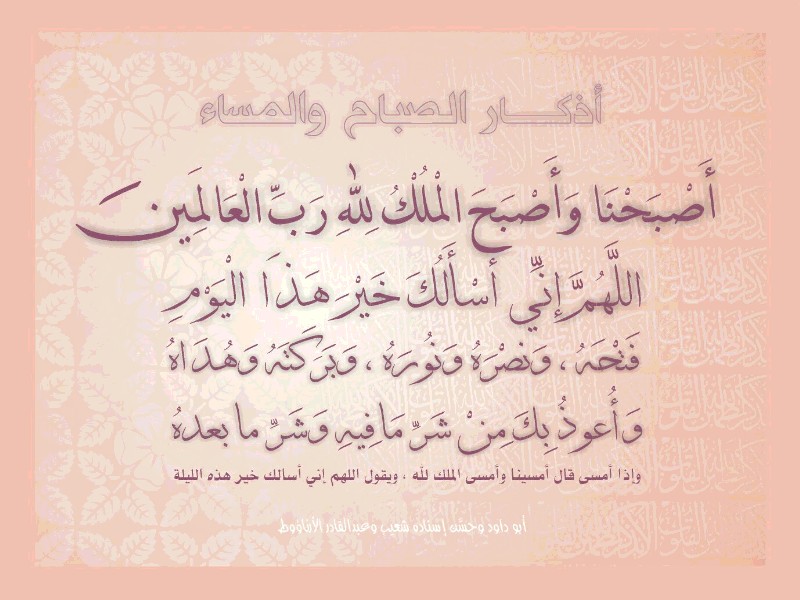 أذكـــار الصباح والمساء
أَصْبَحْنَا وَأَصْبَحَ الْمُلْكُ لِلَّهِ رَبِّ الْعَالَمِينَ
اللَّهُمَّ إِنِّي أَسْأَلُكَ خَيْرَ هَذَا الْيَوْمِ
فَتْحَهُ ، وَنَصْرَهُ وَنُورَهُ ، وَبَرَكَتَهُ وَهُدَاهُ
وَأَعُوذُ بِكَ مِنْ شَرِّ مَا فِيهِ وَشَرِّ ما بعدهُ
وإذا أمسى قال أمسينا وأمسى الملك لله ، ويقول اللهم إني أسالك خير هذه الليلة
أبو داود وحسن إسناده شعيب وعبدالقادر الأرناؤوط